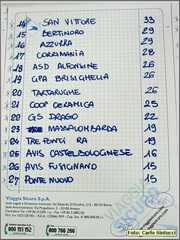 14 SAN VITTORE 33
15 BERTINORO 29
16 AZZURRA 29
17 CORRIMANIA 28
18 ASD ALFONSINE 26
19 GPA BRISIGHELLA 26
20 TARTARUGHE 26
21 COOP CERAMICA 25
22 GS DRAGO 22
23 MASSALOMBARDA 19
24 TRE FONTI RA 19
25 AVIS CASTELBOLOGNESE 16
26 AVIS FUSIGNANO 15
27 PONTE NUOVO 15
Viaggia Sicuro S.p.A.
800 151 152
800 766 266
Foto: Carlo Matteucci